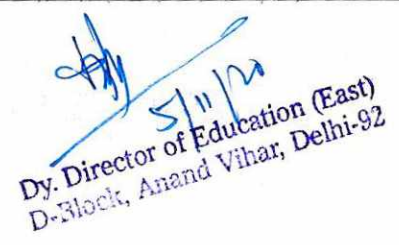 5/11/20
Dy. Director of Education (East)
D-Block, Anand Vihar, Delhi-92